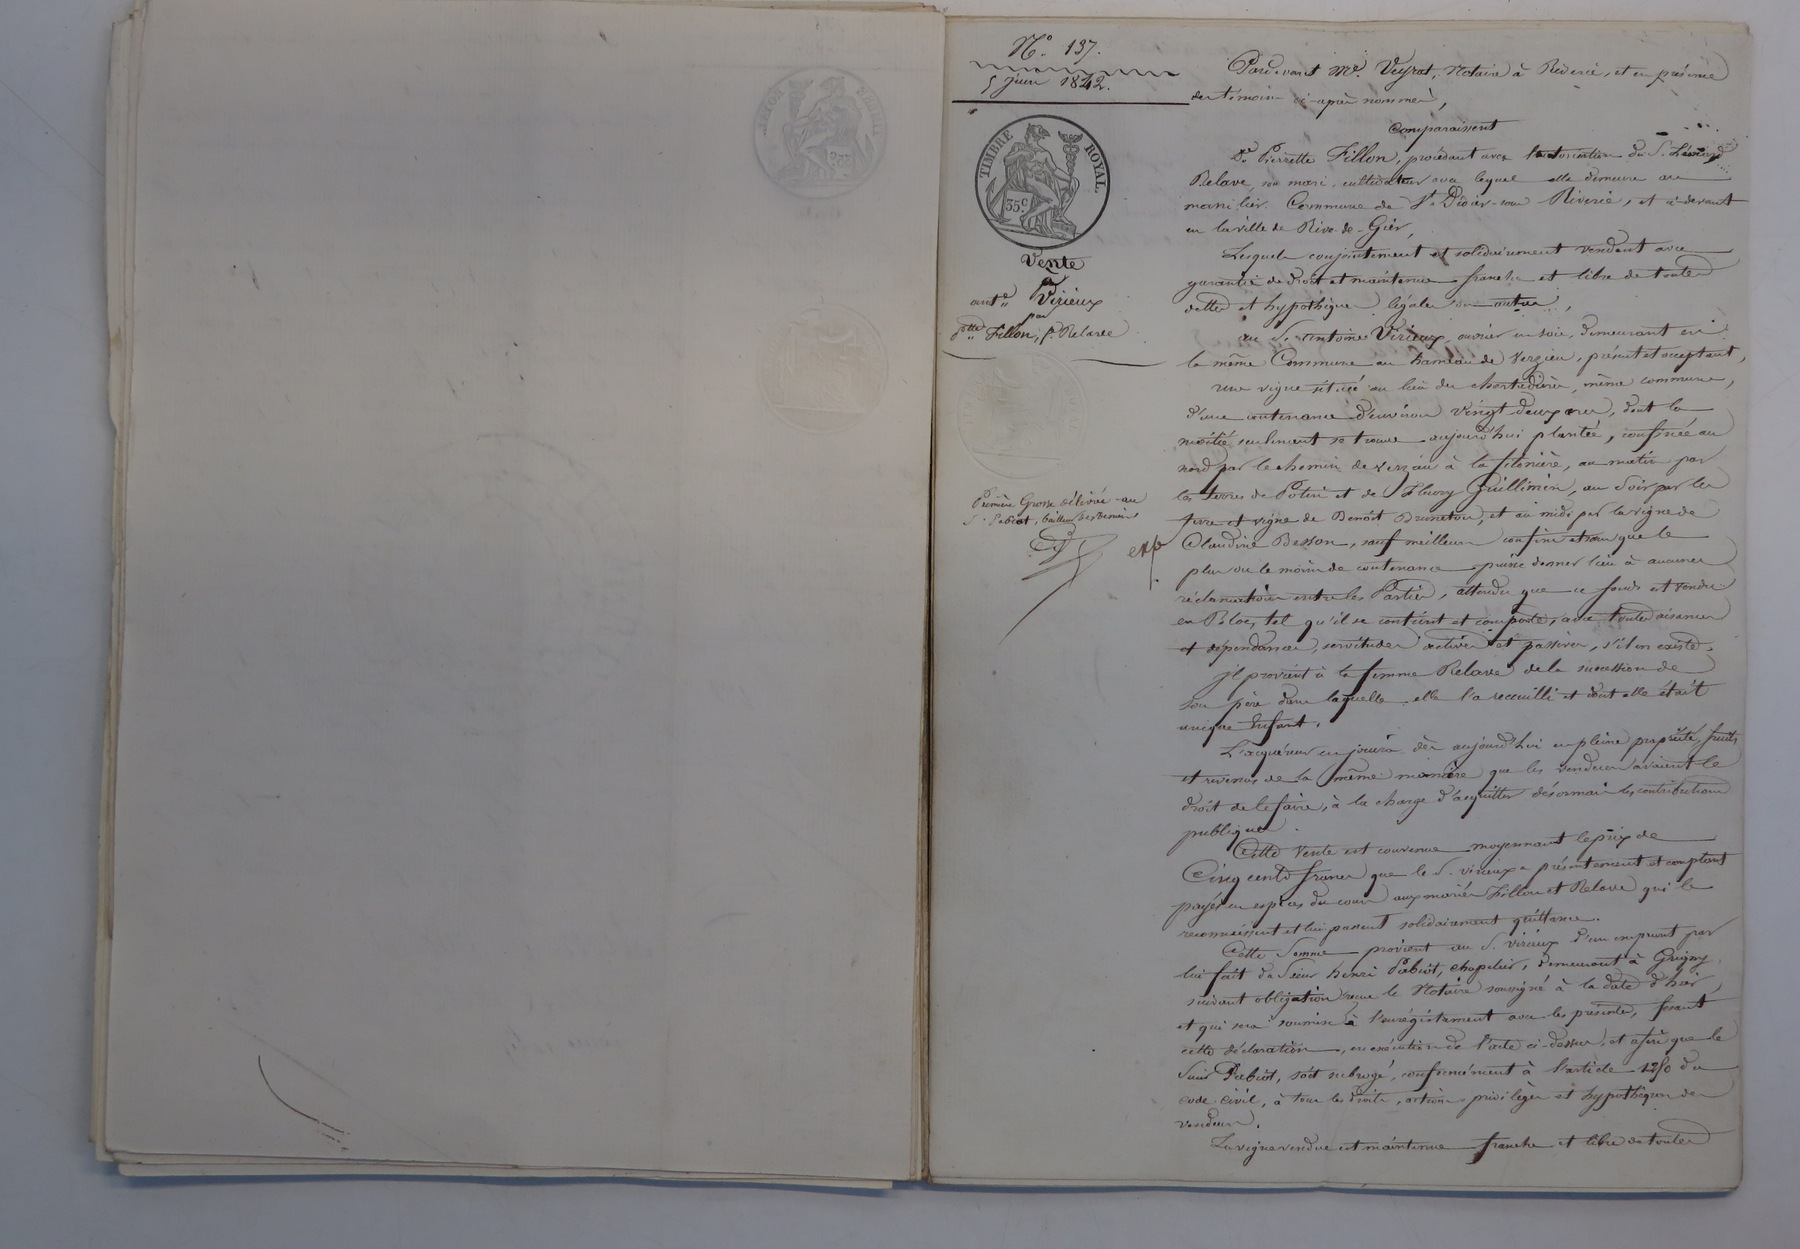 N.o 137.
5 juin 1842.
TIMBRE ROYAL.
35.c
Vente
à
ant.e Virieux
par
p.tte Fillon, f.e Relave
Première Grosse délivrée au
S.r Pabiot, bailleur de deniers
exp.
Pardevant M.e Veyrat, Notaire à Riverie, et en présence
des témoins ci-après nommés,
Comparaissent
D.e Pierrette Fillon, procédant avec l'autorisation du S.
Relave, son mari, cultivateur avec lequel elle demeure au
Commune de S.t Didier-sous Riverie, et ci-devant
en la ville de Rive-de-Gier,
Lesquels conjointement et solidairement vendent avec
garantie de droit et maintenue franche et libre de toutes
dettes et hypothèques légales ou autres,
au S. antoine Virieux, ouvrier en soie, demeurant en
la même Commune au hameau de Verzieu, présent et acceptant,
Une vigne située au lieu du même commune,
d'une contenance d'environ vingt deux ares, dont la
moitié seulement se trouve aujourd'hui plantée, confinée au
nord par le chemin de à la au matin par
les terres de et de Fleury Guillimin, au Soir par les
terre et vigne de Benoît Bruneton, et au midi par la vigne de
Claudine Besson, sauf meilleurs confins et sans que le
plus ou le moins de contenance puisse donner lieu à aucunes
réclamations entre les Parties, attendu que ce fonds est vendu
en Bloc, tel qu'il se contient et comporte, avec toutes aisances
et dépendances, servitudes actives et passives, s'il en existe.
jl provient à la femme Relave de la succession de
son père dans laquelle elle l'a recueilli et dont elle était
unique Enfant.
L'acquéreur en jouira dès aujourd'hui en pleine propriété, fruits
et revenus de la même manière que les vendeurs avaient le
droit de le faire, à la charge d'acquitter désormais les contributions
publiques.
Cette Vente est convenue moyennant le prix de
Cinq cents francs que le S. virieux a présentement et comptant
payés en espèces du cours aux mariés Fillon et Relave qui le
reconnaissent et lui passent solidairement quittance.
Cette Somme provient au S. virieux d'un emprunt par
lui fait du Sieur henri Pabiot, chapelier, demeurant à Grigny,
suivant obligation reçue le Notaire soussigné à la date d'hier,
et qui sera soumise à l'enrégistrement avec les présentes, fesant
cette déclaration, en exécution de l'acte ci-dessus, et afin que le
Sieur Pabiot, soit subrogé, conformément à l'article 1250 du
code civil, à tous les droits, actions, privilèges et hypothèques des
vendeurs.
La vigne vendue est maintenue franche et libre de toutes